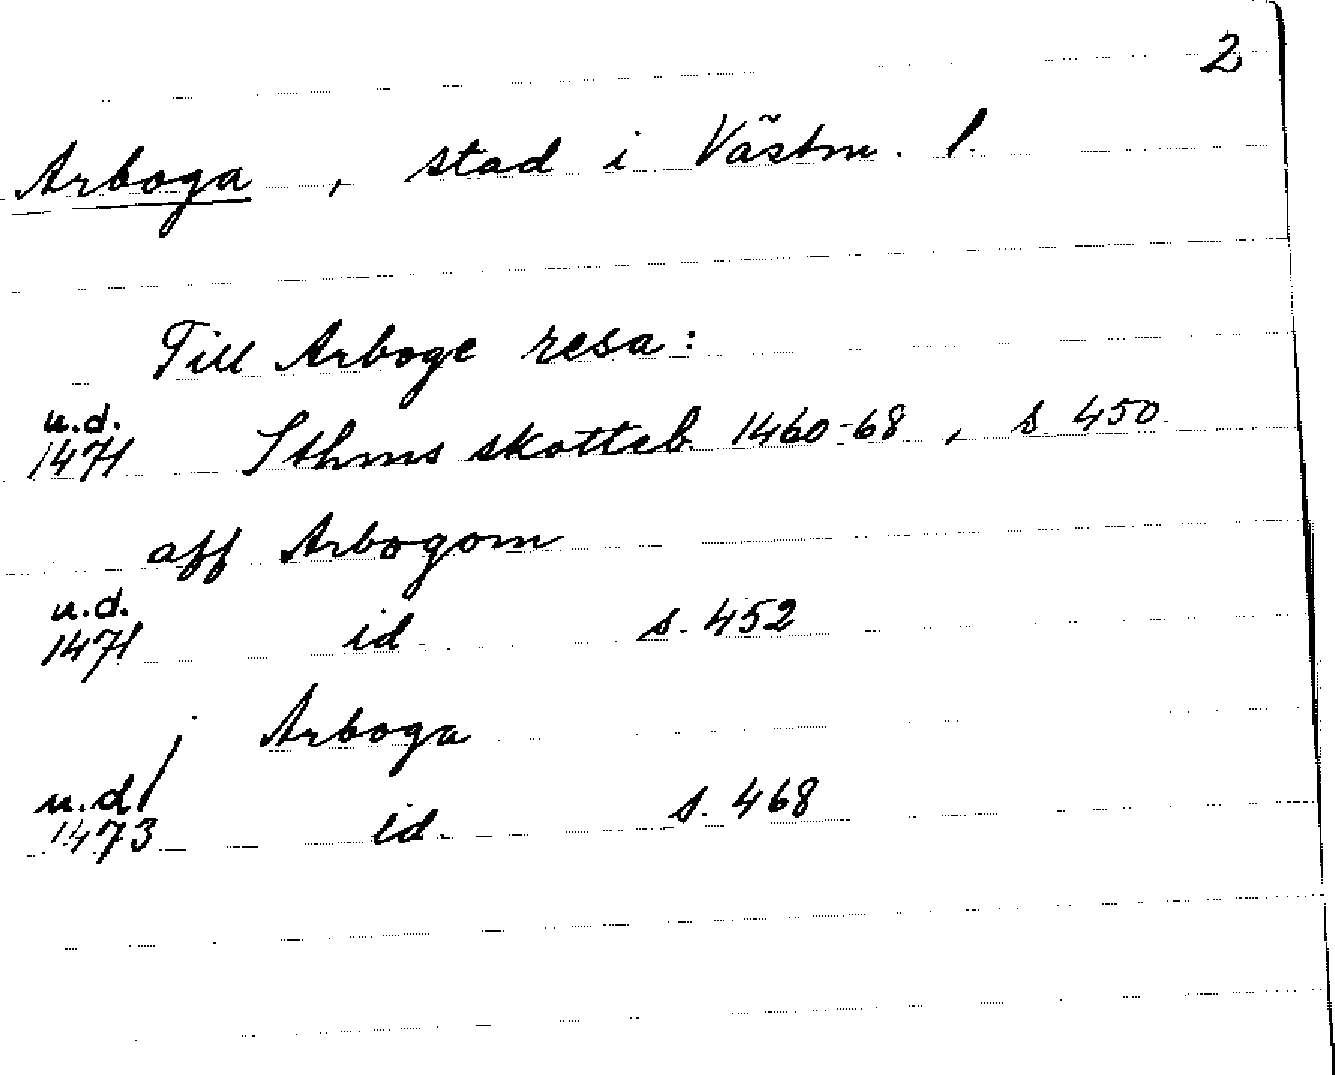 2
Arboga, stad i Västm. l.
Till Arboge resa:
u.d.
1471 Sthms skotteb 1460-68, s 450
aff Arbogom
u.d.
1471 id. s. 452
j Arboga
u.d.
1473 id. s. 468